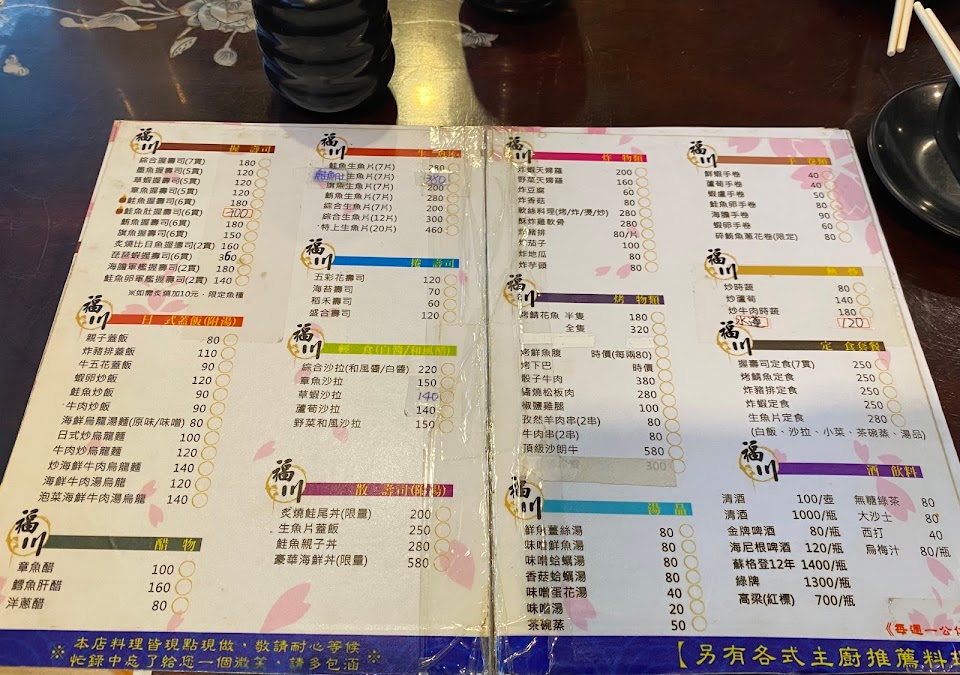 福川
握 壽司
綜合握壽司(7貫) 180
墨魚握壽司(5貫) 120
草蝦握壽司(5貫) 120
章魚握壽司(5貫) 120
鮭魚握壽司(6貫) 180
鮭魚肚握壽司(6貫) 200
鮪魚握壽司(6貫) 180
旗魚握壽司(6貫) 150
炙燒比目魚握壽司(2貫) 160
琵琶蝦握壽司(2貫)
海膽軍艦握壽司(2貫) 180
鮭魚卵軍艦握壽司(2貫) 140
※如需炙燒加10元，限定魚種
福川
日式蓋飯(附湯)
親子蓋飯 80
炸豬排蓋飯 110
牛五花蓋飯 90
蝦卵炒飯 120
鮭魚炒飯 90
牛肉炒飯 90
海鮮烏龍湯麵(原味/味噌) 80
日式炒烏龍麵 100
牛肉炒烏龍麵 120
炒海鮮牛肉烏龍麵 140
海鮮牛肉湯烏龍 120
泡菜海鮮牛肉湯烏龍 140
福川
醋 物
章魚醋 100
鱈魚肝醋 160
洋蔥醋 80
福川
鮭魚生魚片(7片) 280
鮭魚肚生魚片(7片) 380
旗魚生魚片(7片) 200
鮪魚生魚片(7片) 280
綜合生魚片(7片) 200
綜合生魚片(12片) 300
特上生魚片(20片) 460
福川
捲 壽司
五彩花壽司 120
海苔壽司 70
稻禾壽司 60
盛合壽司 120
福川
輕 食(白醬/和風醋)
綜合沙拉(和風醬/白醬) 220
章魚沙拉 150
草蝦沙拉 140
蘆筍沙拉 140
野菜和風沙拉 150
福川
散 壽司(附湯)
炙燒鮭尾丼(限量) 200
生魚片蓋飯 250
鮭魚親子丼 280
豪華海鮮丼(限量) 580
福川
炸 物類
炸蝦天婦羅 200
野菜天婦羅 160
炸豆腐 60
炸香菇 80
軟絲料理(烤/炸/燙/炒) 280
酥炸雞軟骨 80
炸豬排 80/片
炸茄子 100
炸地瓜 80
炸芋頭 80
福川
烤 物類
烤鯖花魚 半隻 180
全隻 320
烤鮮魚腹 時價(每兩80)
烤下巴 時價
骰子牛肉 380
醬燒松板肉 280
椒鹽雞腿 100
孜然羊肉串(2串) 80
牛肉串(2串) 80
頂級沙朗牛 580
300
福川
湯 品
鮮魚薑絲湯 80
味噌鮮魚湯 80
味噌蛤蠣湯 80
香菇蛤蠣湯 80
味噌蛋花湯 40
味噌湯 20
茶碗蒸 50
福川
手卷類
鮮蝦手卷 40
蘆筍手卷 40
蝦蘆手卷 50
鮭魚卵手卷 80
海膽手卷 90
蝦卵手卷 60
碎鮪魚蔥花卷(限定) 80
福川
熱 炒
炒時蔬 80
炒蘆筍 140
炒牛肉時蔬 140
水蓮 120
福川
定 食套餐
握壽司定食(7貫) 250
烤鯖魚定食 250
炸豬排定食 250
炸蝦定食 250
生魚片定食 280
(白飯、沙拉、小菜、茶碗蒸、湯品)
福川
酒 飲料
清酒 100/壺
清酒 1000/瓶
金牌啤酒 80/瓶
海尼根啤酒 120/瓶
蘇格登12年 1400/瓶
綠牌 1300/瓶
高粱(紅標) 700/瓶
無糖綠茶 80
大沙士 80
西打 40
烏梅汁 80/瓶
《每週一公休
※ 本店料理皆現點現做，敬請耐心等侯 ※
忙錄中忘了給您一個微笑，請多包涵
【另有各式主廚推薦料理